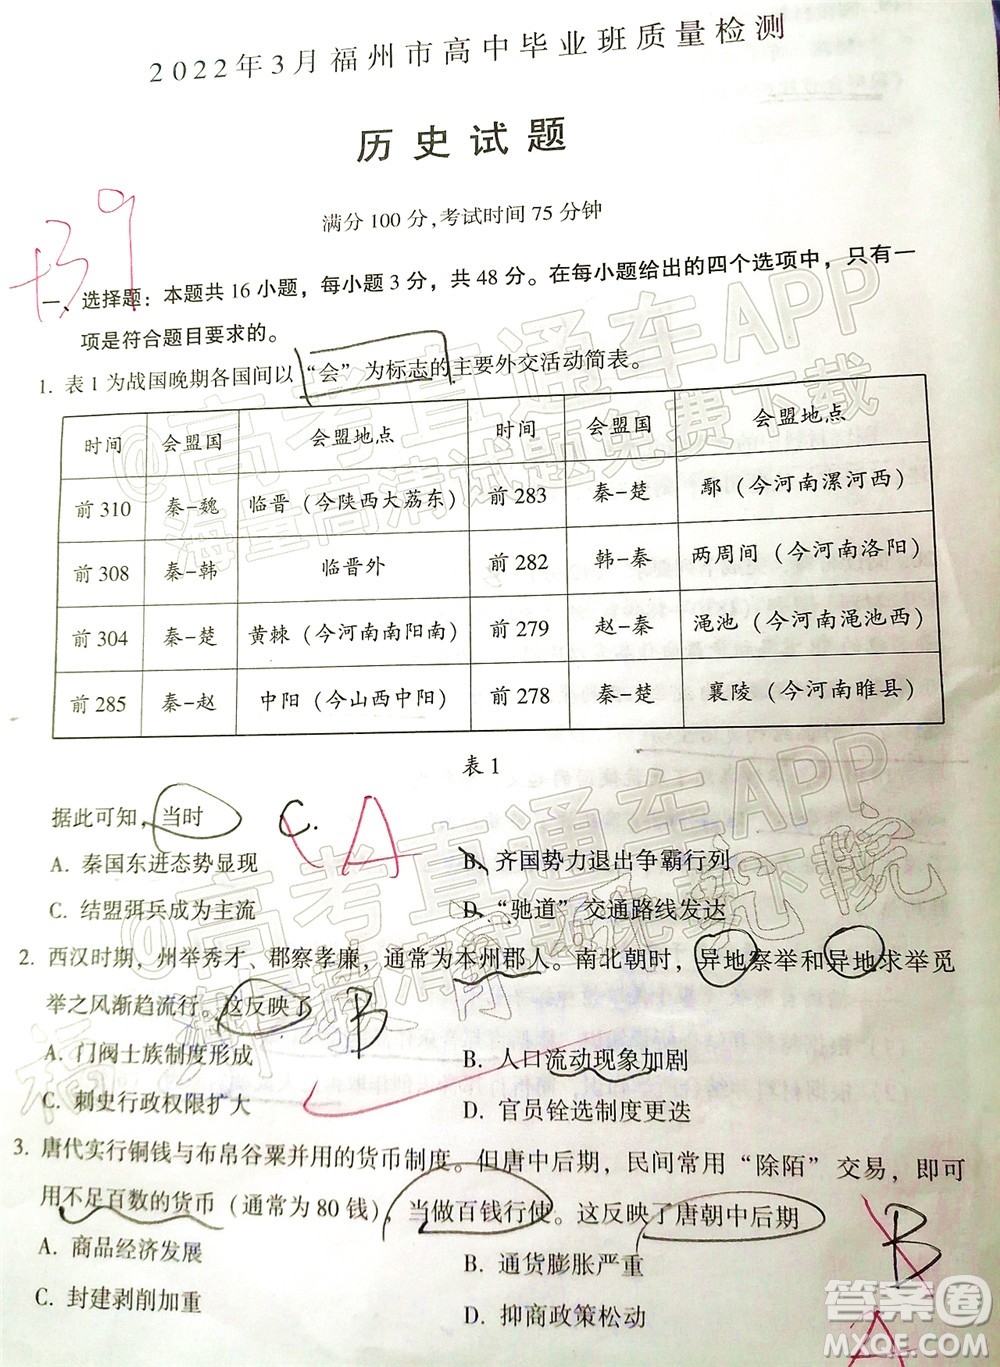 2022年3月福州市高中毕业班质量检测
历史试题
+39
满分100分,考试时间75分钟
一、选择题：本题共16小题，每小题3分，共48分。在每小题给出的四个选项中，只有一
项是符合题目要求的。
1. 表1为战国晚期各国间以“会”为标志的主要外交活动简表。
时间 会盟国 会盟地点 时间 会盟国 会盟地点
前310 秦-魏 临晋（今陕西大荔东） 前283 秦-楚 鄢（今河南漯河西）
前308 秦-韩 临晋外 前282 韩-秦 两周间（今河南洛阳）
前304 秦-楚 黄棘（今河南南阳南） 前279 赵-秦 渑池（今河南渑池西）
前285 秦-赵 中阳（今山西中阳） 前278 秦-楚 襄陵（今河南睢县）
表1
据此可知，当时 C. A
A. 秦国东进态势显现 B. 齐国势力退出争霸行列
C. 结盟弭兵成为主流 D. “驰道”交通路线发达
2. 西汉时期，州举秀才、郡察孝廉，通常为本州郡人。南北朝时，异地察举和异地求举觅
举之风渐趋流行。这反映了 B
A. 门阀士族制度形成 B. 人口流动现象加剧
C. 刺史行政权限扩大 D. 官员铨选制度更迭
3. 唐代实行铜钱与布帛谷粟并用的货币制度。但唐中后期，民间常用“除陌”交易，即可
用不足百数的货币（通常为80钱），当做百钱行使。这反映了唐朝中后期
A. 商品经济发展 B. 通货膨胀严重 B
C. 封建剥削加重 D. 抑商政策松动 A
@高考直通车APP
海量高清试题免费下载
@高考直通车APP
答案圈
MXQE.COM